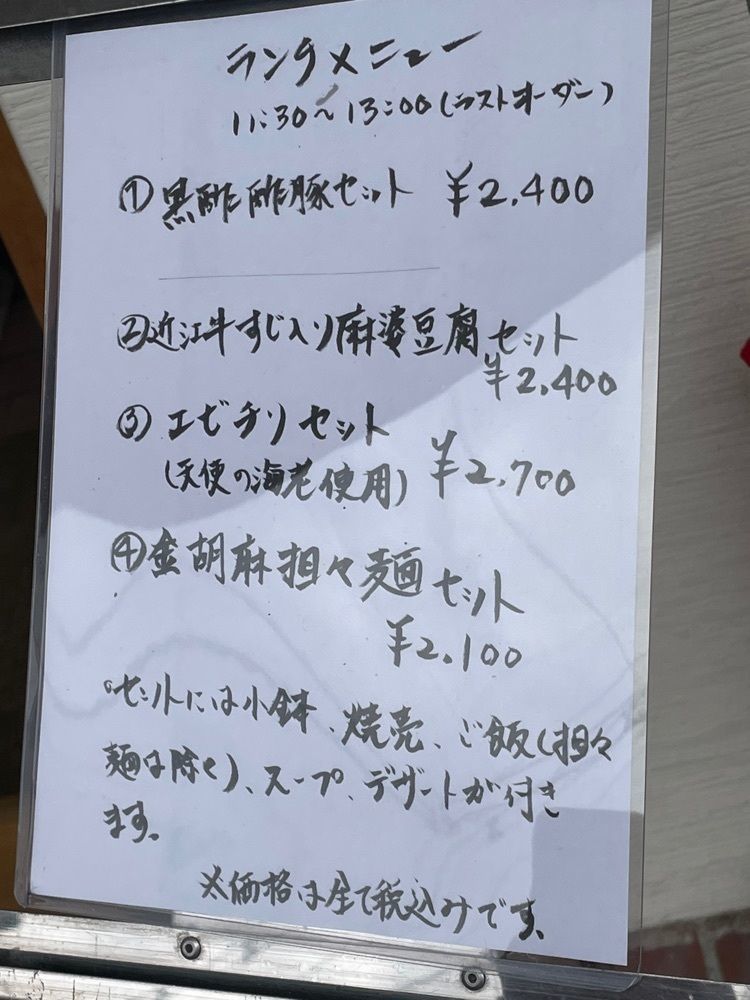 ランチメニュー
11:30〜13:00(ラストオーダー)
①黒酢酢豚セット ¥2,400
②近江牛すじ入り麻婆豆腐セット
¥2,400
③エビチリセット
(天使の海老使用) ¥2,700
④金胡麻担々麺セット
¥2,100
・セットには小鉢、焼売、ご飯(担々
麺は除く)、スープ、デザートが付き
ます。
※価格は全て税込みです。